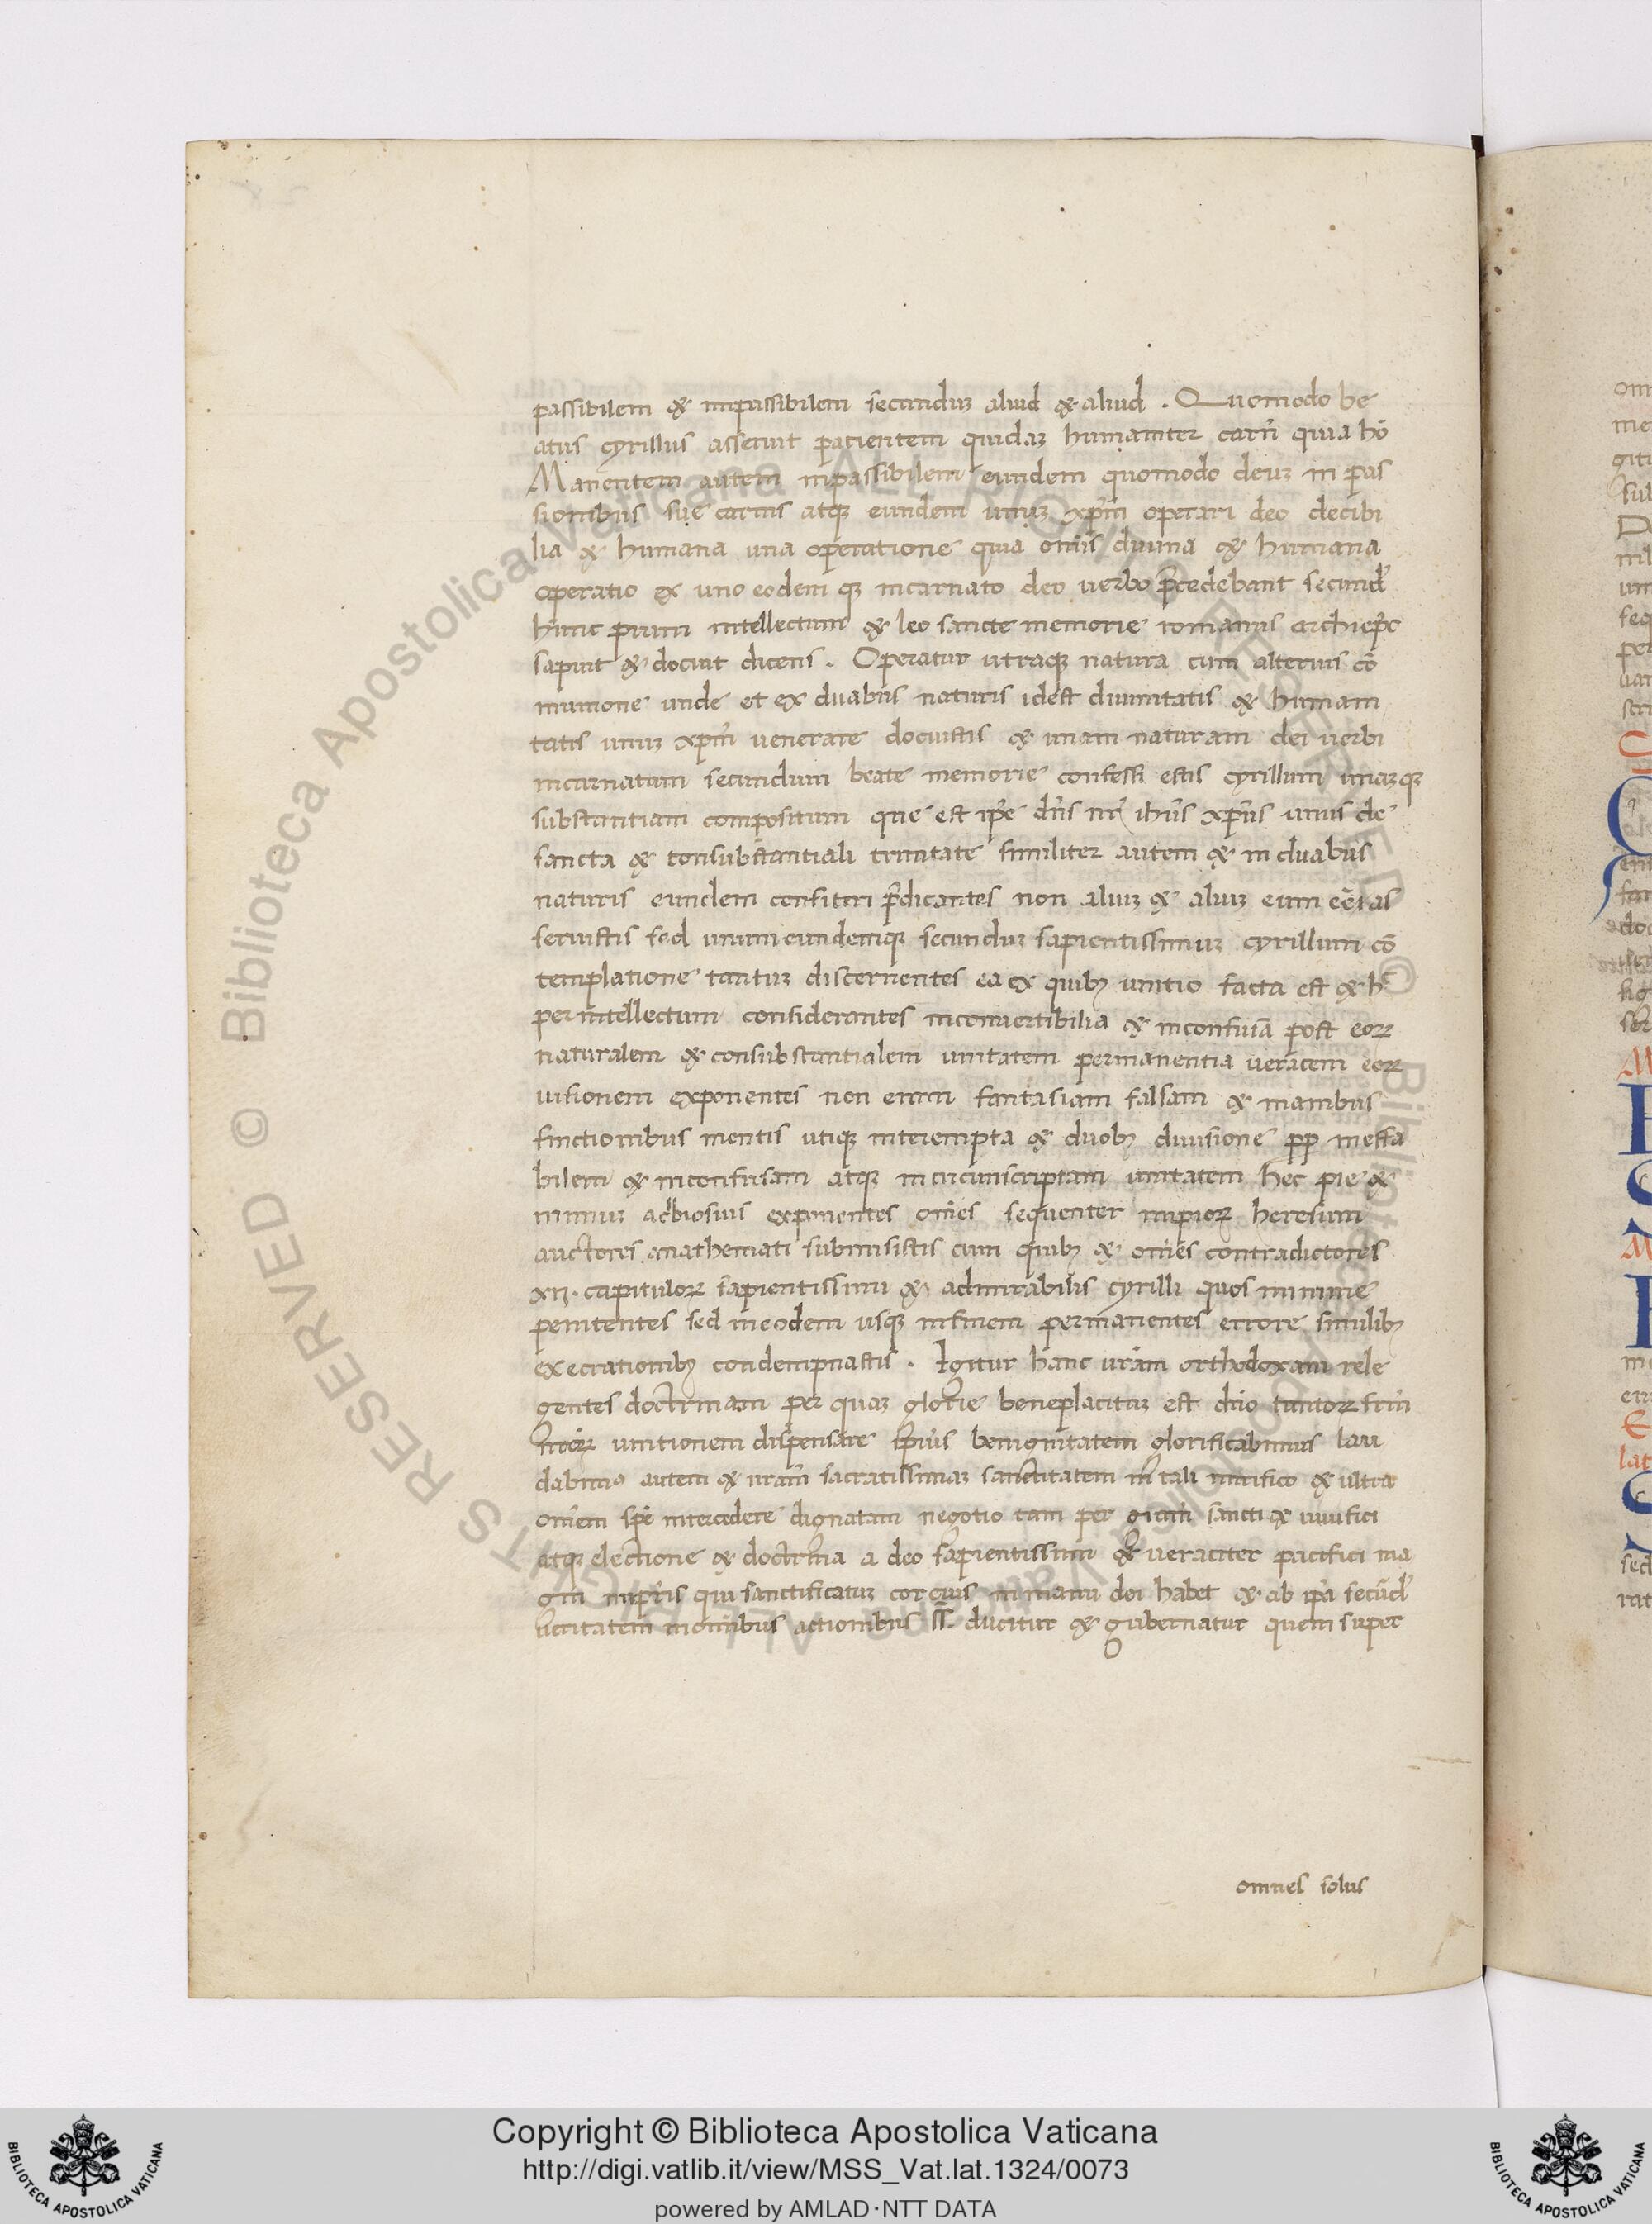 passibilem & impassibilem secunduʒ aliud & aliud . Quomodo be
atus cyrillus asseruit patientem quidaʒ humaniter carñ quia hõ
Manentem autem inpassibilem eundem quomodo deuʒ in pas
sionibus sue carnis atqʒ eundem unuʒ xp̃m operari deo decibi
lia & humana una operatione quia om̃is diuina & humana
operatio ex uno eodem qʒ incarnato deo uerbo p̃cedebant secund̃
hunc pium intellectum & leo sancte memorie romanus archiep̃c
sapuit & docuit dicens . Operatur utraqʒ natura cum alterius cõ
munione unde et ex duabus naturis idest diuinitatis & humani
tatis unuʒ xpm̃ uenerare docuistis & unam naturam dei uerbi
incarnatam secundum beate memorie confessi estis cyrillum unaʒqʒ
substantiam compositam que est ip̃e dñs nr̃ ihũs xp̃us unus de
sancta & consubstantiali trinitate similiter autem & in duabus
naturis eundem confiteri p̃dicantes non aliuʒ & aliuʒ eum eẽ as
seruistis sed unum eundemqʒ secunduʒ sapientissimuʒ cyrillum cõ
templatione tantuʒ discernentes ea ex quibʒ unitio facta est & h̃
per intellectum considerantes inconuertibilia & inconfusã post eorʒ
naturalem & consubstantialem unitatem permanentia ueracem eorʒ
uisionem exponentes non enim fantasiam falsam & manibus
finctionibus mentis utiqʒ interempta & duobʒ diuisione pp̱ ineffa
bilem & inconfusam atqʒ incircunscriptam unitatem hec pie &
nimiuʒ exponentes om̃es sequenter impiorʒ heresum
auctores anathemati submisistis cum quibʒ & om̃es contradictores
xii. capitulorʒ sapientissimi & admirabilis cyrilli quos minime
penitentes sed ineodem usqʒ infinem permanentes errore similibʒ
execrationibʒ condempnastis . Igitur hanc ur̃am orthodoxam rele
gentes doctrinam per quaʒ glorie beneplacituʒ est dño tantorʒ
unitionem dispensare ip̃ius benignitatem glorificabimus lau
dabimus autem & uram̃ sacratissimaʒ sanctitatem in tali mirifico & ultra
om̃em spẽ intercedere dignatam negotio tam per sancti & uiuifici
atqʒ electione & doctrina a deo sapientissimi & ueraciter pacifici ma
gni imp̃ris qui sanctificatuʒ cor eius in manu dei habet & ab ip̃a secũd̃
ueritatem inom̃ibus actionibus ss̃. ducitur & gubernatur quem super
omnes solus